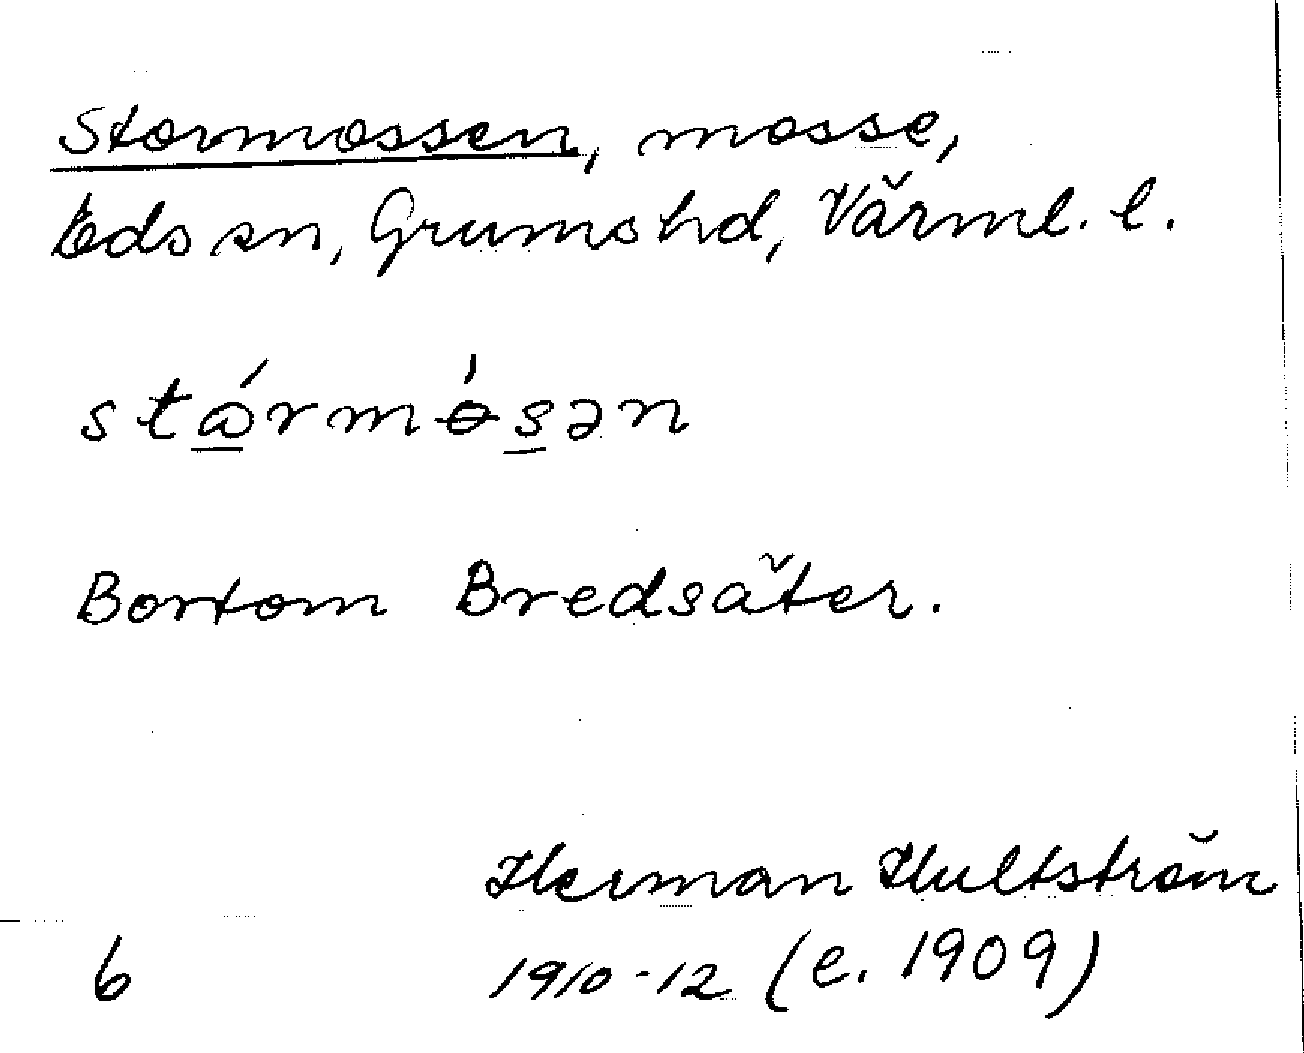 Stormossen, mosse,
Eds sn, Grums hd, Värml. l.
stώrmɵ́sən
Bortom Bredsäter.
Herman Hultström
6 1910-12 (e. 1909)